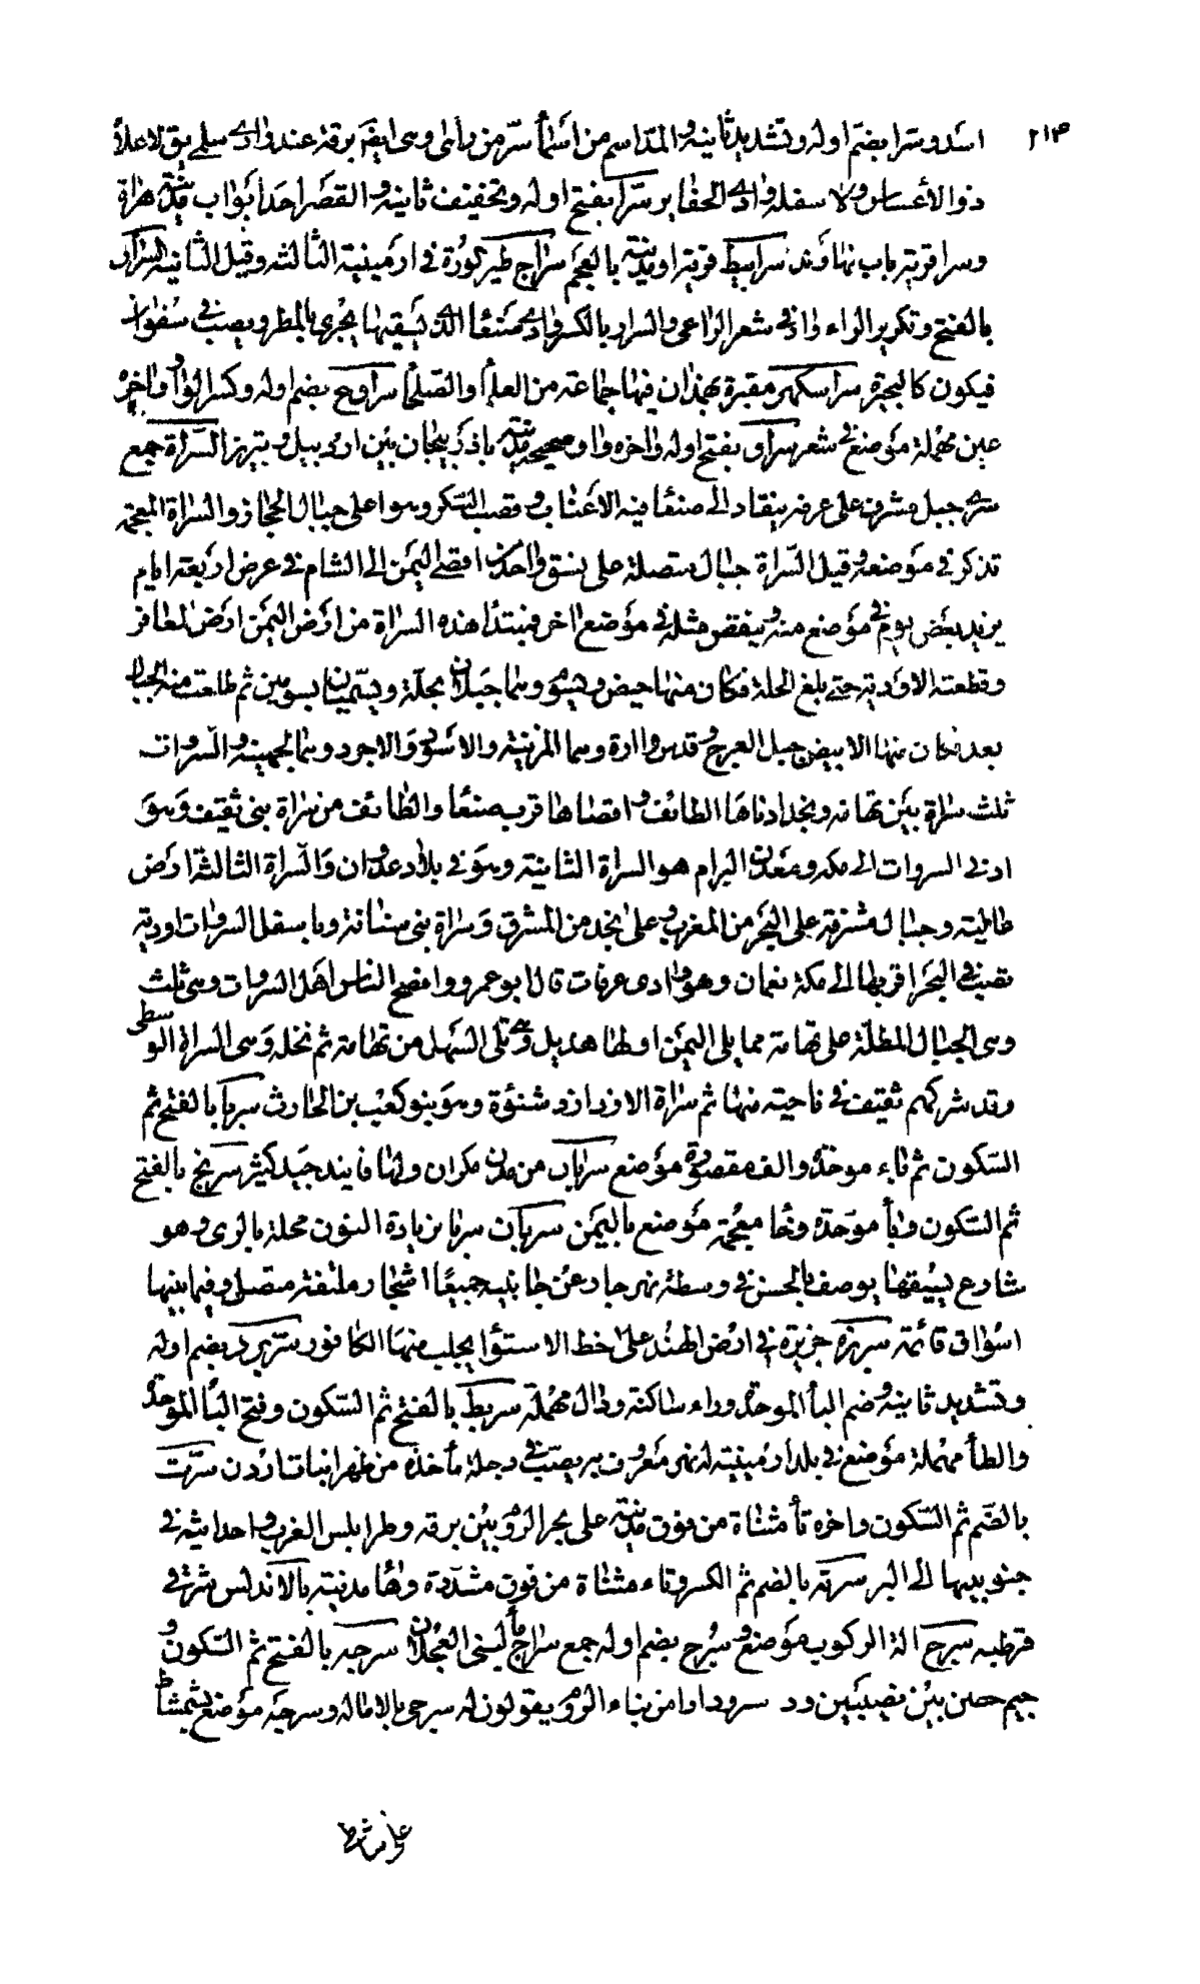 ٢١٣
اسد وسرا بضم اوله وتشديد ثانيه والمد اسم من اسماء سر من راى وهى ايضا برقة عند وادى سلى يق لاعلاه
ذو الأعساس ولا سفله وادى الحفاير سرا بفتح اوله وتخفيف ثانيه والقصر احد ابواب مدينة هراة
وسرا قرية بباب نهاوند سرابيط قرية او مدينة بالعجم سراج طير كورة فى ارمينية الثالثة وقيل الثانية السرار
بالفتح وتكرير الراء واد فى شعر الراعى والسرار بالكسر وادى صنعا الذى يسقيها يجرى بالمطر ويصب فى سنوان
فيكون كالبحيرة سراسكهر مقبرة بهمذان فيها جماعة من العلما والصلحا سراوع بضم اوله وكسر الواو واخره
عين مهملة موضع فى شعر سراو بفتح اوله واخره واو صحيحة مدينة باذربيجان بين اردبيل وتبريز السراة جمع
سرى جبل مشرف على عرفة ينقاد الى صنعا فيه الاعناب وقصب السكر وهو اعلى جبال الحجاز والسراة المعجمة
تذكر فى موضعه وقيل السراة جبال متصلة على نسق واحد من اقصى اليمن الى الشام فى عرض اربعة ايام
يزيد بعض يوم فى موضع منه وينقص مثله فى موضع اخر فمبتدأ هذه السراة من ارض اليمن ارض المعافر
وقطعته الاودية حتى بلغ الحلة فكان منها حيض ويسوم وهما جبلان بحلة ويسميان يسومين ثم طلعت منه الجبال
بعد فكان منها الابيض جبل العرج وقدس وارة وهما المزينة والاشعر والاجرد وهما لجهينة والسروات
ثلث سراة بين تهامة ونجد ادناها الطائف واقصاها قرب صنعا والطائف من سراة بنى ثقيف وهو
ادنى السروات الى مكة ومعدن البرام هو السراة الثانية وهو فى بلاد عدوان والسراة الثالثة ارض
عالية وجبال مشرفة على البحر من المغرب وعلى نجد من المشرق وسراة بنى شبابة وبا سفل السروات اودية
تصب فى البحر اقربها الى مكة نعمان وهو وادى عرفات قال ابو عمرو وافصح الناس اهل السروات وهى ثلث
وهى الجبال المطلة على تهامة مما يلى اليمن اولها هذيل وهى تلى السهل من تهامة ثم نخلة وهى السراة الوسطى
وقد شركهم ثقيف فى ناحية منها ثم سراة الازد ازد شنؤة وهو بنو كعب بن الحارث سربا بالفتح ثم
السكون ثم باء موحدة والف مقصورة موضع سرباب من مدن مكران ولها فانيد جيد كثير سربخ بالفتح
ثم السكون وبأ موحدة وخا معجمة موضع باليمن سربان سربا بزيادة النون محلة بالرى وهو
شارع يشقها يوصف بالحسن فى وسطه نهر جار عن جانبيه جميعا اشجار ملتفة متصل وفيما بينها
اسواق قائمة سربزه جزيرة فى ارض الهند على خط الاستوا يجلب منها الكافور سربرد بضم اوله
وتشديد ثانيه وضم البأ الموحدة وراء ساكنة ودال مهملة سربط بالفتح ثم السكون وفتح البأ الموحدة
والطأ مهملة موضع فى بلد ارمينية له نهر معروف به يصب فى دجلة مأخذه من ظهر ابيات ارزن سرت
بالضم ثم السكون واخره تأ مثناة من فوق مدينة على بحر الروم بين برقة وطرابلس الغرب واجدابية فى
جنوبيها الى البر سرته بالضم ثم الكسر وتاء مثناة من فوق مشددة وها مدينة بالاندلس شرقى
قرطبه سرج الة الركوب موضع وسرج بضم اوله جمع سراج ما لبنى العجلان سرجه بالفتح ثم السكون و
جيم حصن بين نصيبين ود سر ودارا من بناء الروم يقولون له سرجى بالاماله وسرجة موضع بشمشاط